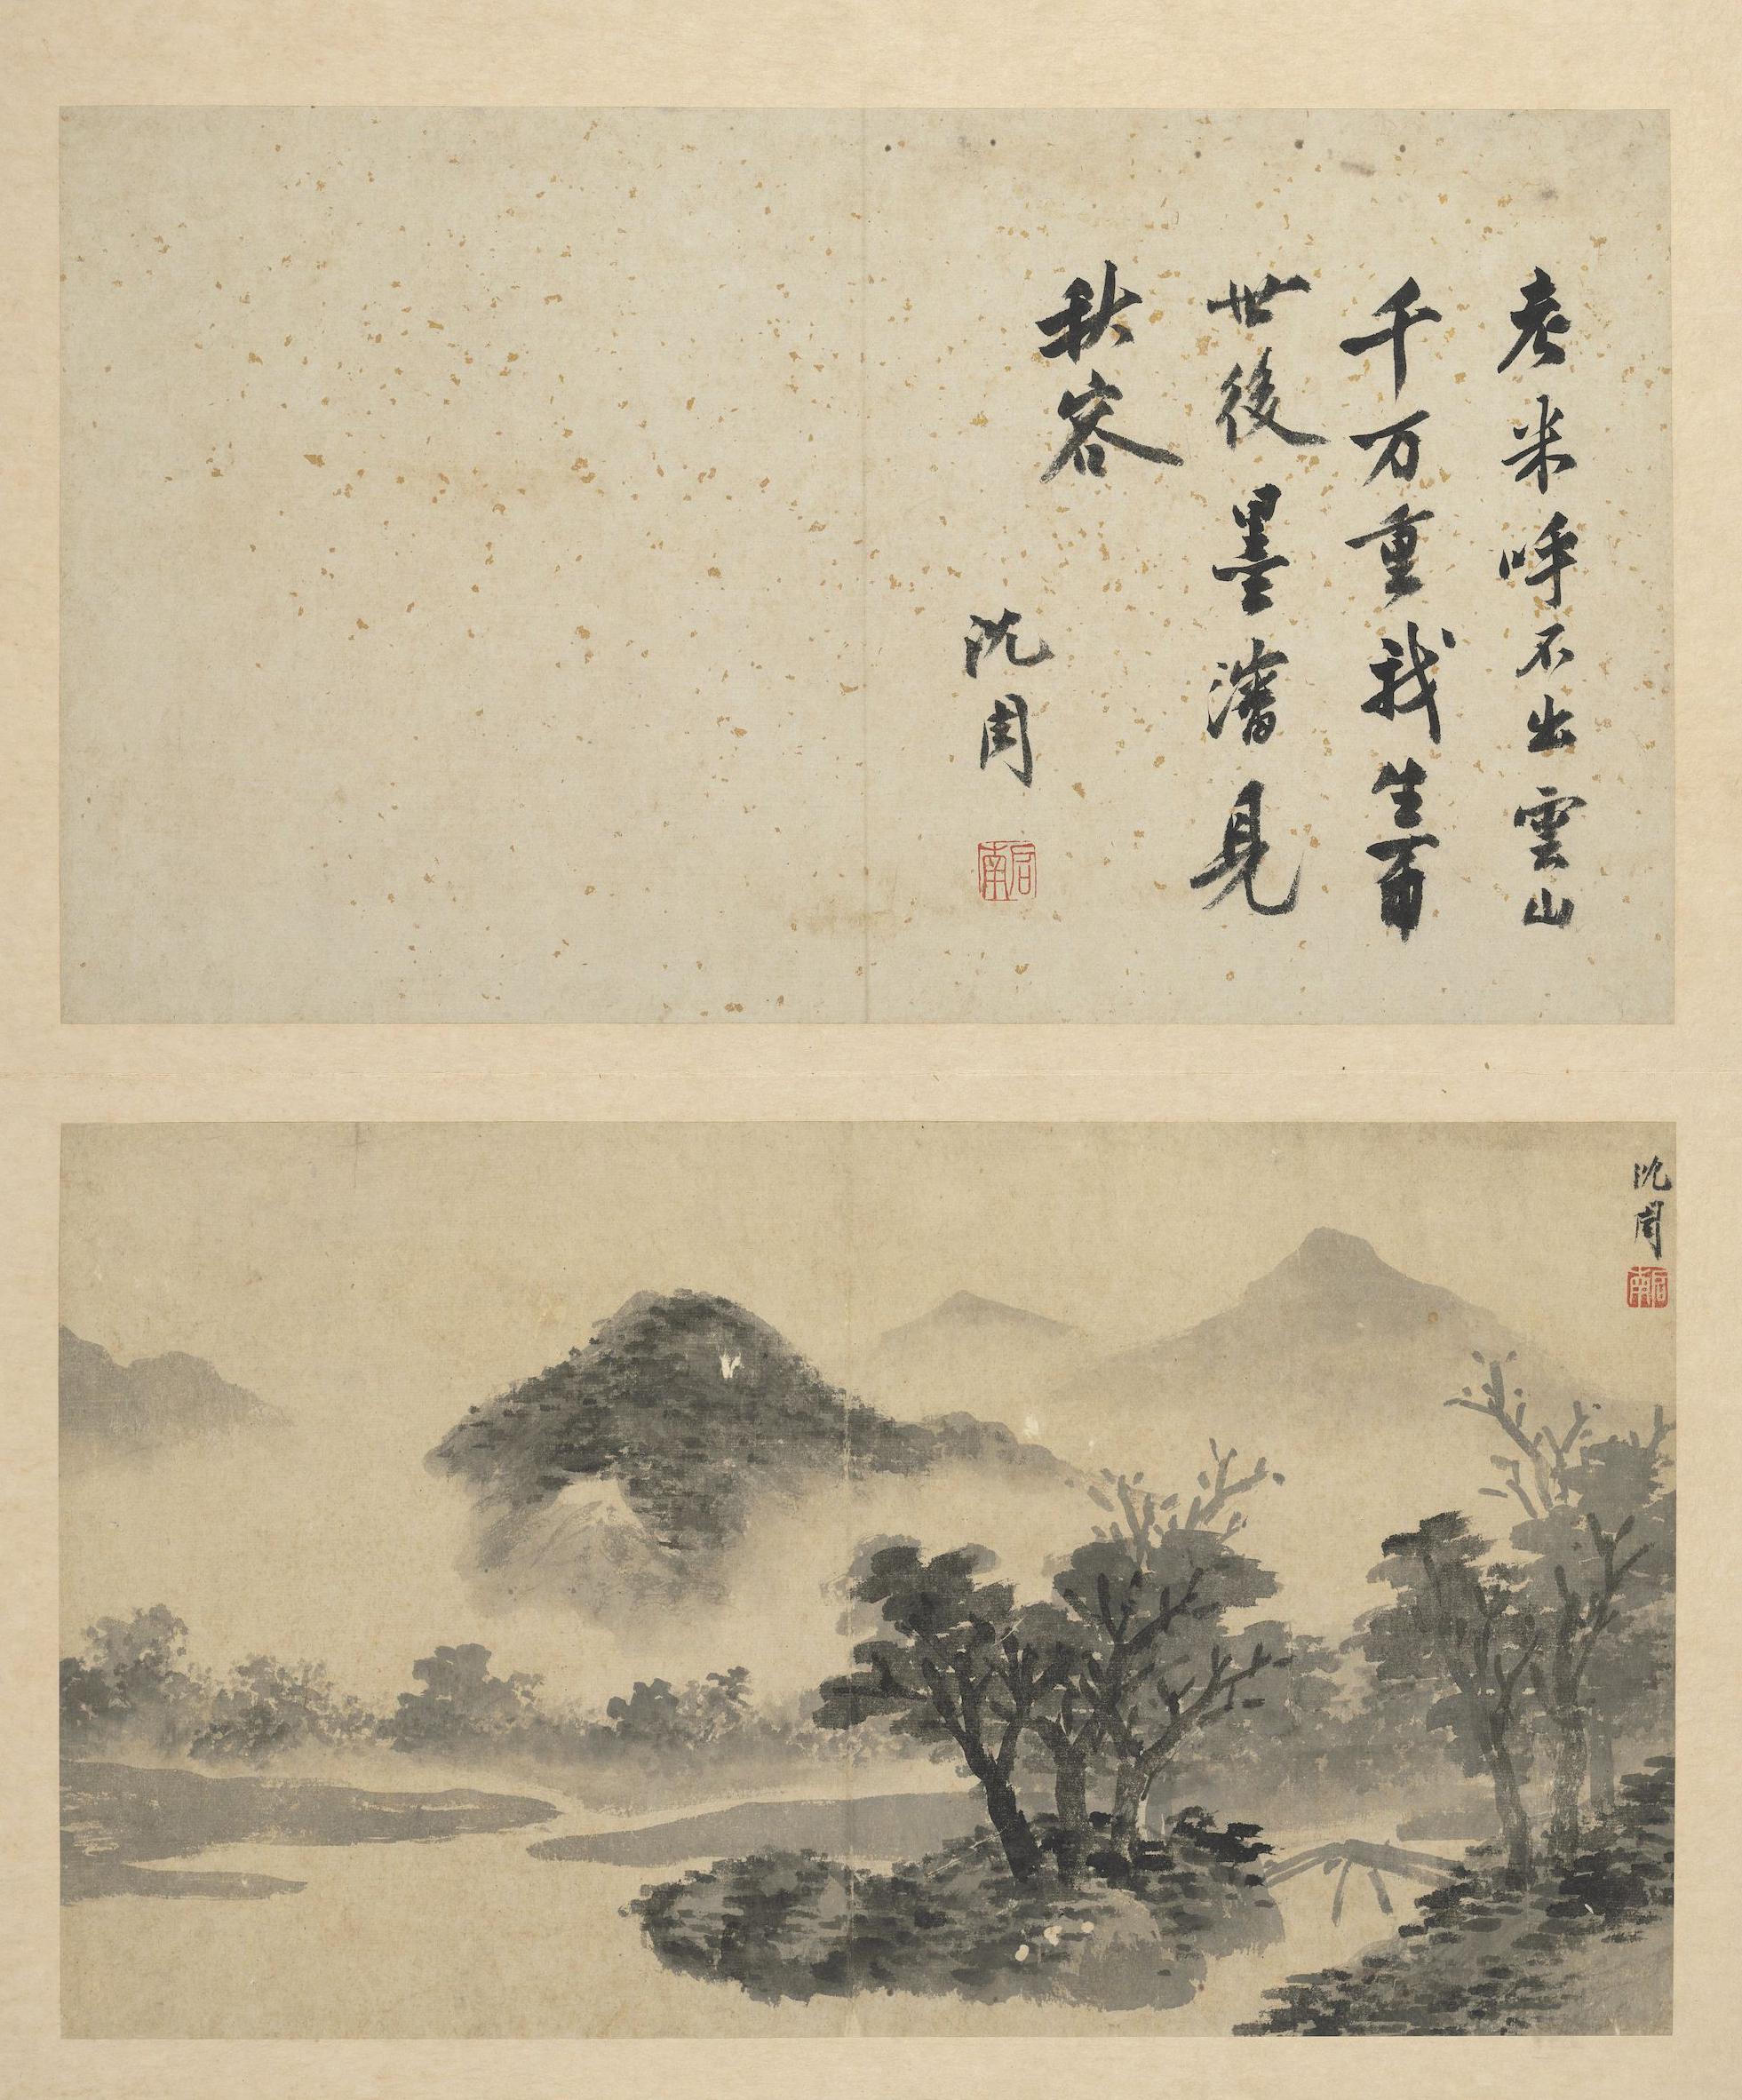 老米呼不出雲山
千万重我生百
世後墨瀋見
秋容
沈周
啟南
沈周
啟南